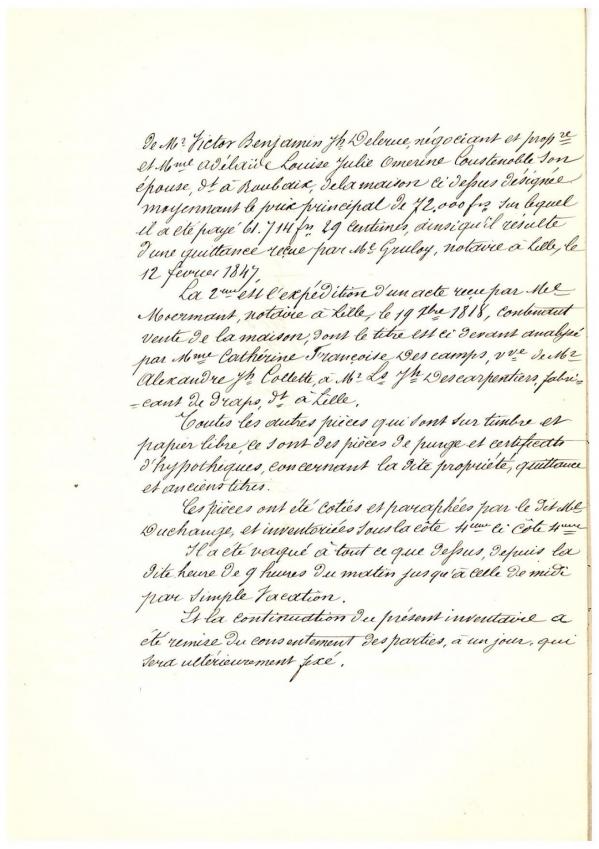 de Mr Victor Benjamin Jh Delerue, négociant et propre
et Mme adélaïde Louise Julie Omerine Coustenoble son
épouse, dt à Roubaix, de la maison ci dessus désignée
moyennant le prix principal de 72.000 frs sur lequel
il a été payé 61.714 frs 29 centimes, ainsi qu'il résulte
d'une quittance reçue par Me Gruloy, notaire à Lille, le
12 février 1847.
La 2eme est l'expédition d'un acte reçu par Me
Moermant, notaire à Lille, le 19 xbre 1818, contenant
vente de la maison, dont le titre est ci devant analysé
par Mme Cathérine Françoise Descamps, vve de Mr
Alexandre Jh Collette, à Mr Ls Jh Descarpentiers, fabri-
-cant de draps, dt à Lille.
Toutes les autres pièces qui sont sur timbre et
papier libre, ce sont des pièces de purge et certificats
d'hypothèques, concernant la dite propriété, quittance
et anciens titres.
Ces pièces ont été cotées et paraphées par le dit Me
Duchange, et inventoriées sous la côte 4eme ci côte 4eme
Il a été vaqué à tout ce que dessus, depuis la
dite heure de 9 heures du matin jusqu'à celle de midi
par simple vacation.
Et la continuation du présent inventaire a
été remise du consentement des parties, à un jour, qui
sera ultérieurement fixé.